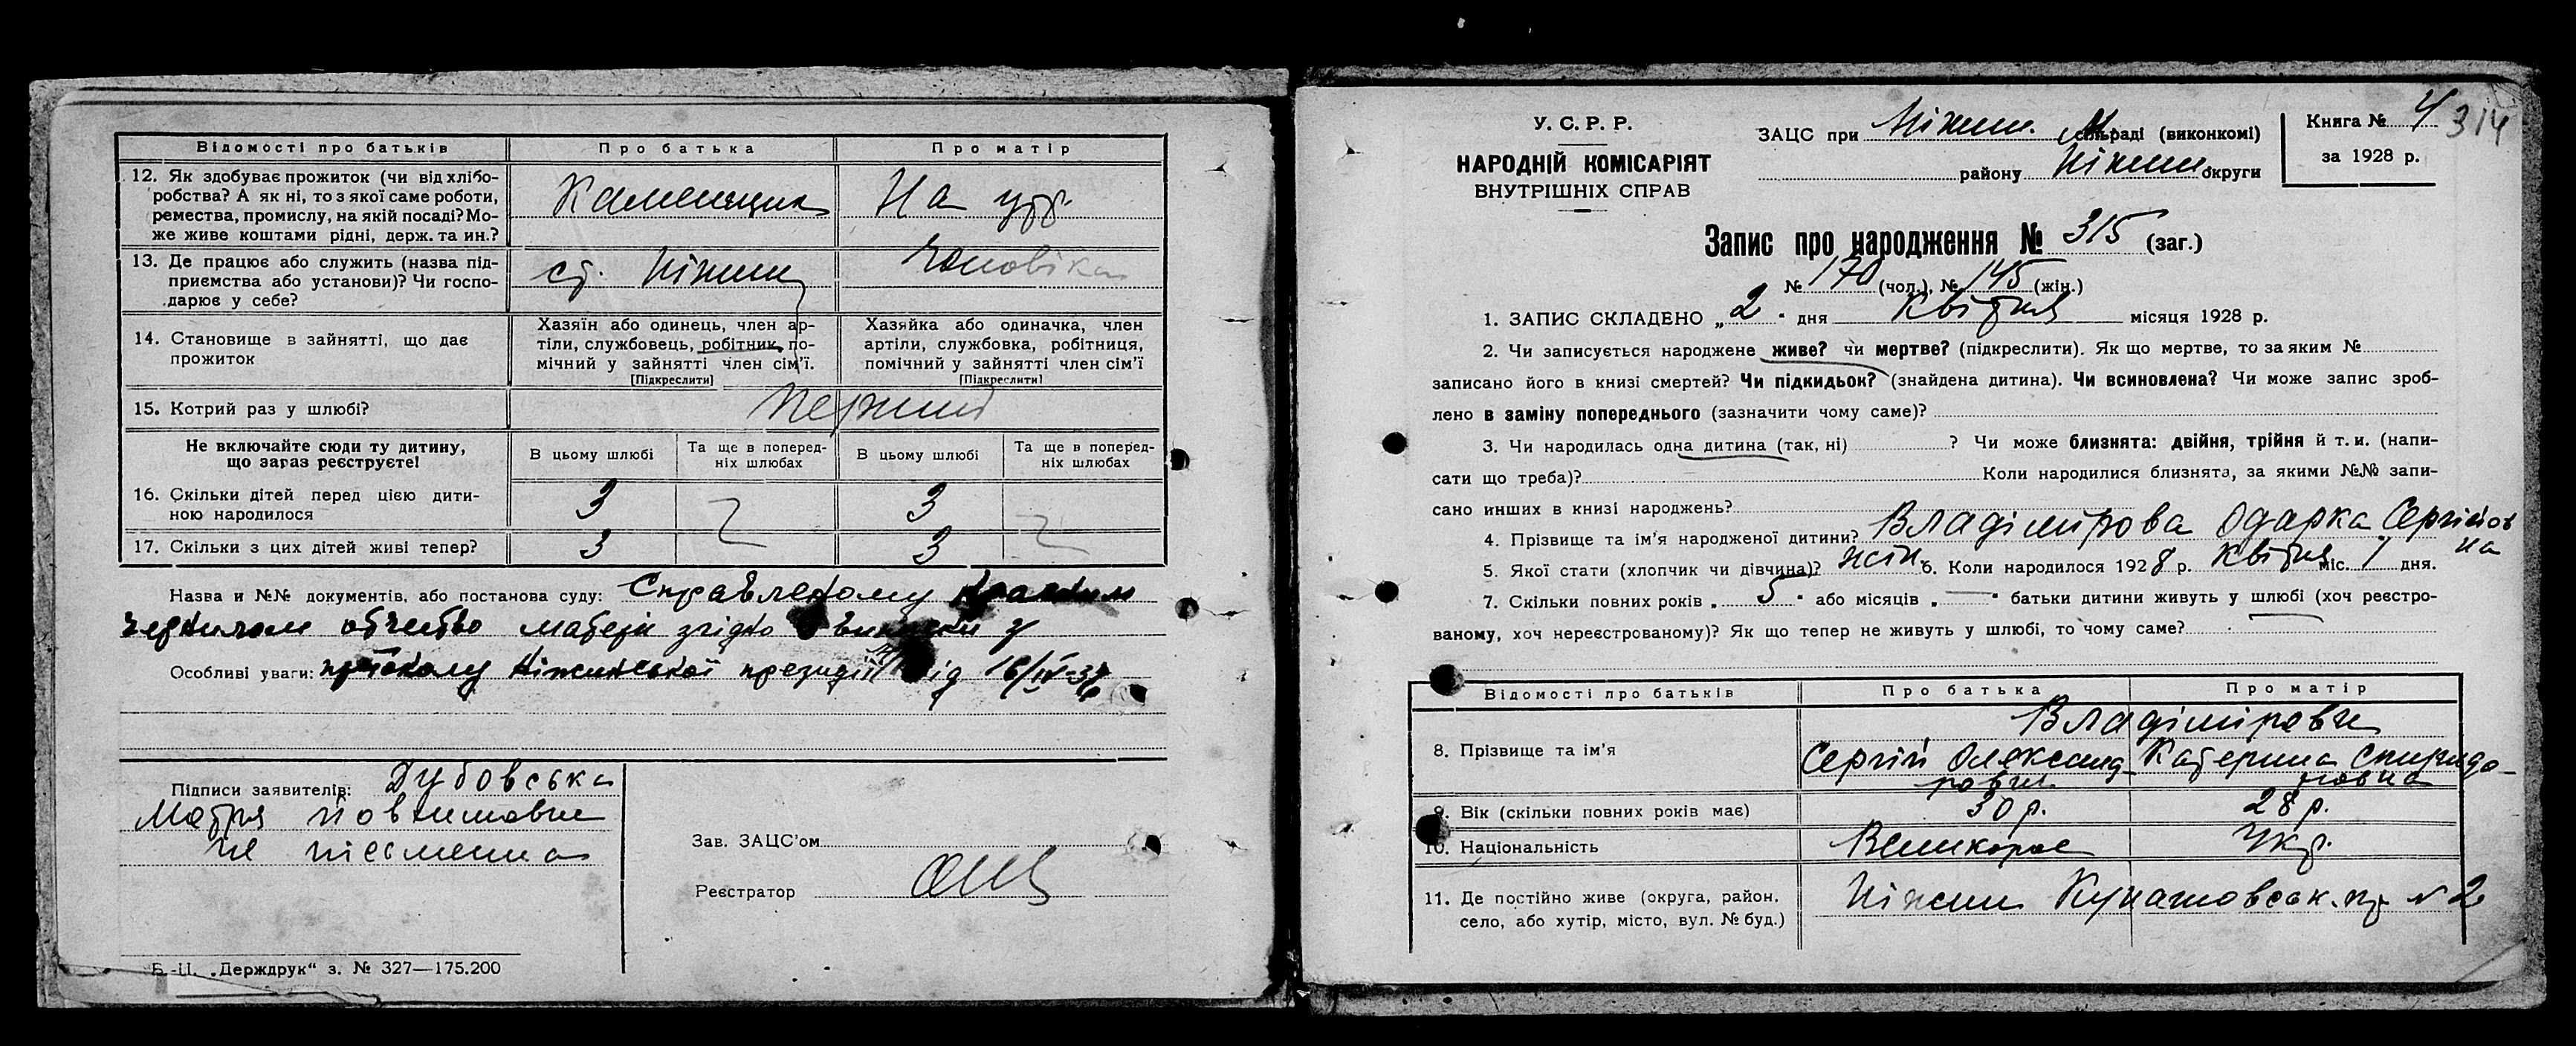 Відомості про батьків Про батька Про матір
12. Як здобуває прожиток (чи від хлібо-
робства? А як ні, то з якої саме роботи,
ремества, промислу, на якій посаді? Мо-
же живе коштами рідні, держ. та ин.?
Каменщик На утр.
13. Де працює або служить (назва під-
приємства або установи)? Чи госпо-
дарює у себе?
ст. Ніжин чоловіка
14. Становище в зайнятті, що дає
прожиток
Хазяїн або одинець, член ар-
тіли, службовець, робітник, по-
мічний у зайнятті член сім'ї.
[Підкреслити]
Хазяйка або одиначка, член
артіли, службовка, робітниця,
помічний у зайнятті член сім'ї
[Підкреслити]
15. Котрий раз у шлюбі? перший
Не включайте сюди ту дитину,
що зараз реєструєте!
В цьому шлюбі
Та ще в поперед-
ніх шлюбах
В цьому шлюбі
Та ще в поперед-
ніх шлюбах
16. Скільки дітей перед цією дити-
ною народилося
3 3
17. Скільки з цих дітей живі тепер? 3 3
Назва и №№ документів, або постанова суду: Справленому
матери згідно
Особливі уваги: Ніжинської президії від 16/IV-
Підписи заявителів: Дубовська
Мотря
не письменна
Зав. ЗАЦС'ом
Реєстратор
Б.-Ц. „Держдрук“ з. № 327—175.200
У. С. Р. Р.
НАРОДНІЙ КОМІСАРІЯТ
ВНУТРІШНІХ СПРАВ
ЗАЦС при Ніжин. М. сільраді (виконкомі)
району Ніжин округи
Книга № 4
за 1928 р.
314
Запис про народження № 315 (заг.)
№ 170 (чол.), № 145 (жін.)
1. ЗАПИС СКЛАДЕНО „2“ дня Квітня місяця 1928 р.
2. Чи записується народжене живе? чи мертве? (підкреслити). Як що мертве, то за яким №
записано його в книзі смертей? Чи підкидьок? (знайдена дитина). Чи всиновлена? Чи може запис зроб-
лено в заміну попереднього (зазначити чому саме)?
3. Чи народилась одна дитина (так, ні) ? Чи може близнята: двійня, трійня й т. и. (напи-
сати що треба)? Коли народилися близнята, за якими №№ запи-
сано инших в книзі народжень?
4. Прізвище та ім'я народженої дитини? Владімірова Одарка Сергійов
на
5. Якої стати (хлопчик чи дівчина)? жін. 6. Коли народилося 1928 р. Квітня міс. 1 дня.
7. Скільки повних років „5“ або місяців „—“ батьки дитини живуть у шлюбі (хоч реєстро-
ваному, хоч нереєстрованому)? Як що тепер не живуть у шлюбі, то чому саме?
Відомості про батьків Про батька Про матір
8. Прізвище та ім'я
Владімірови
Сергій Олександ- Катерина Спиридо-
рович новна
9. Вік (скільки повних років має) 30 р. 28 р.
10. Національність Великорос Укр.
11. Де постійно живе (округа, район,
село, або хутір, місто, вул. № буд.)
Ніжин Кунашовськ. № 2